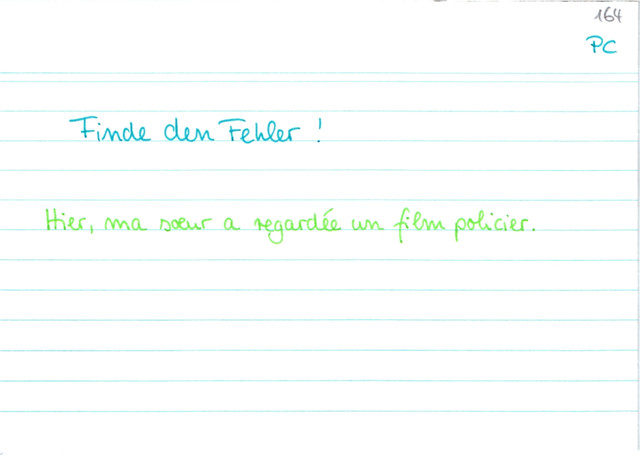 164
PC
Finde den Fehler!
Hier, ma sœur a regardée un film policier.